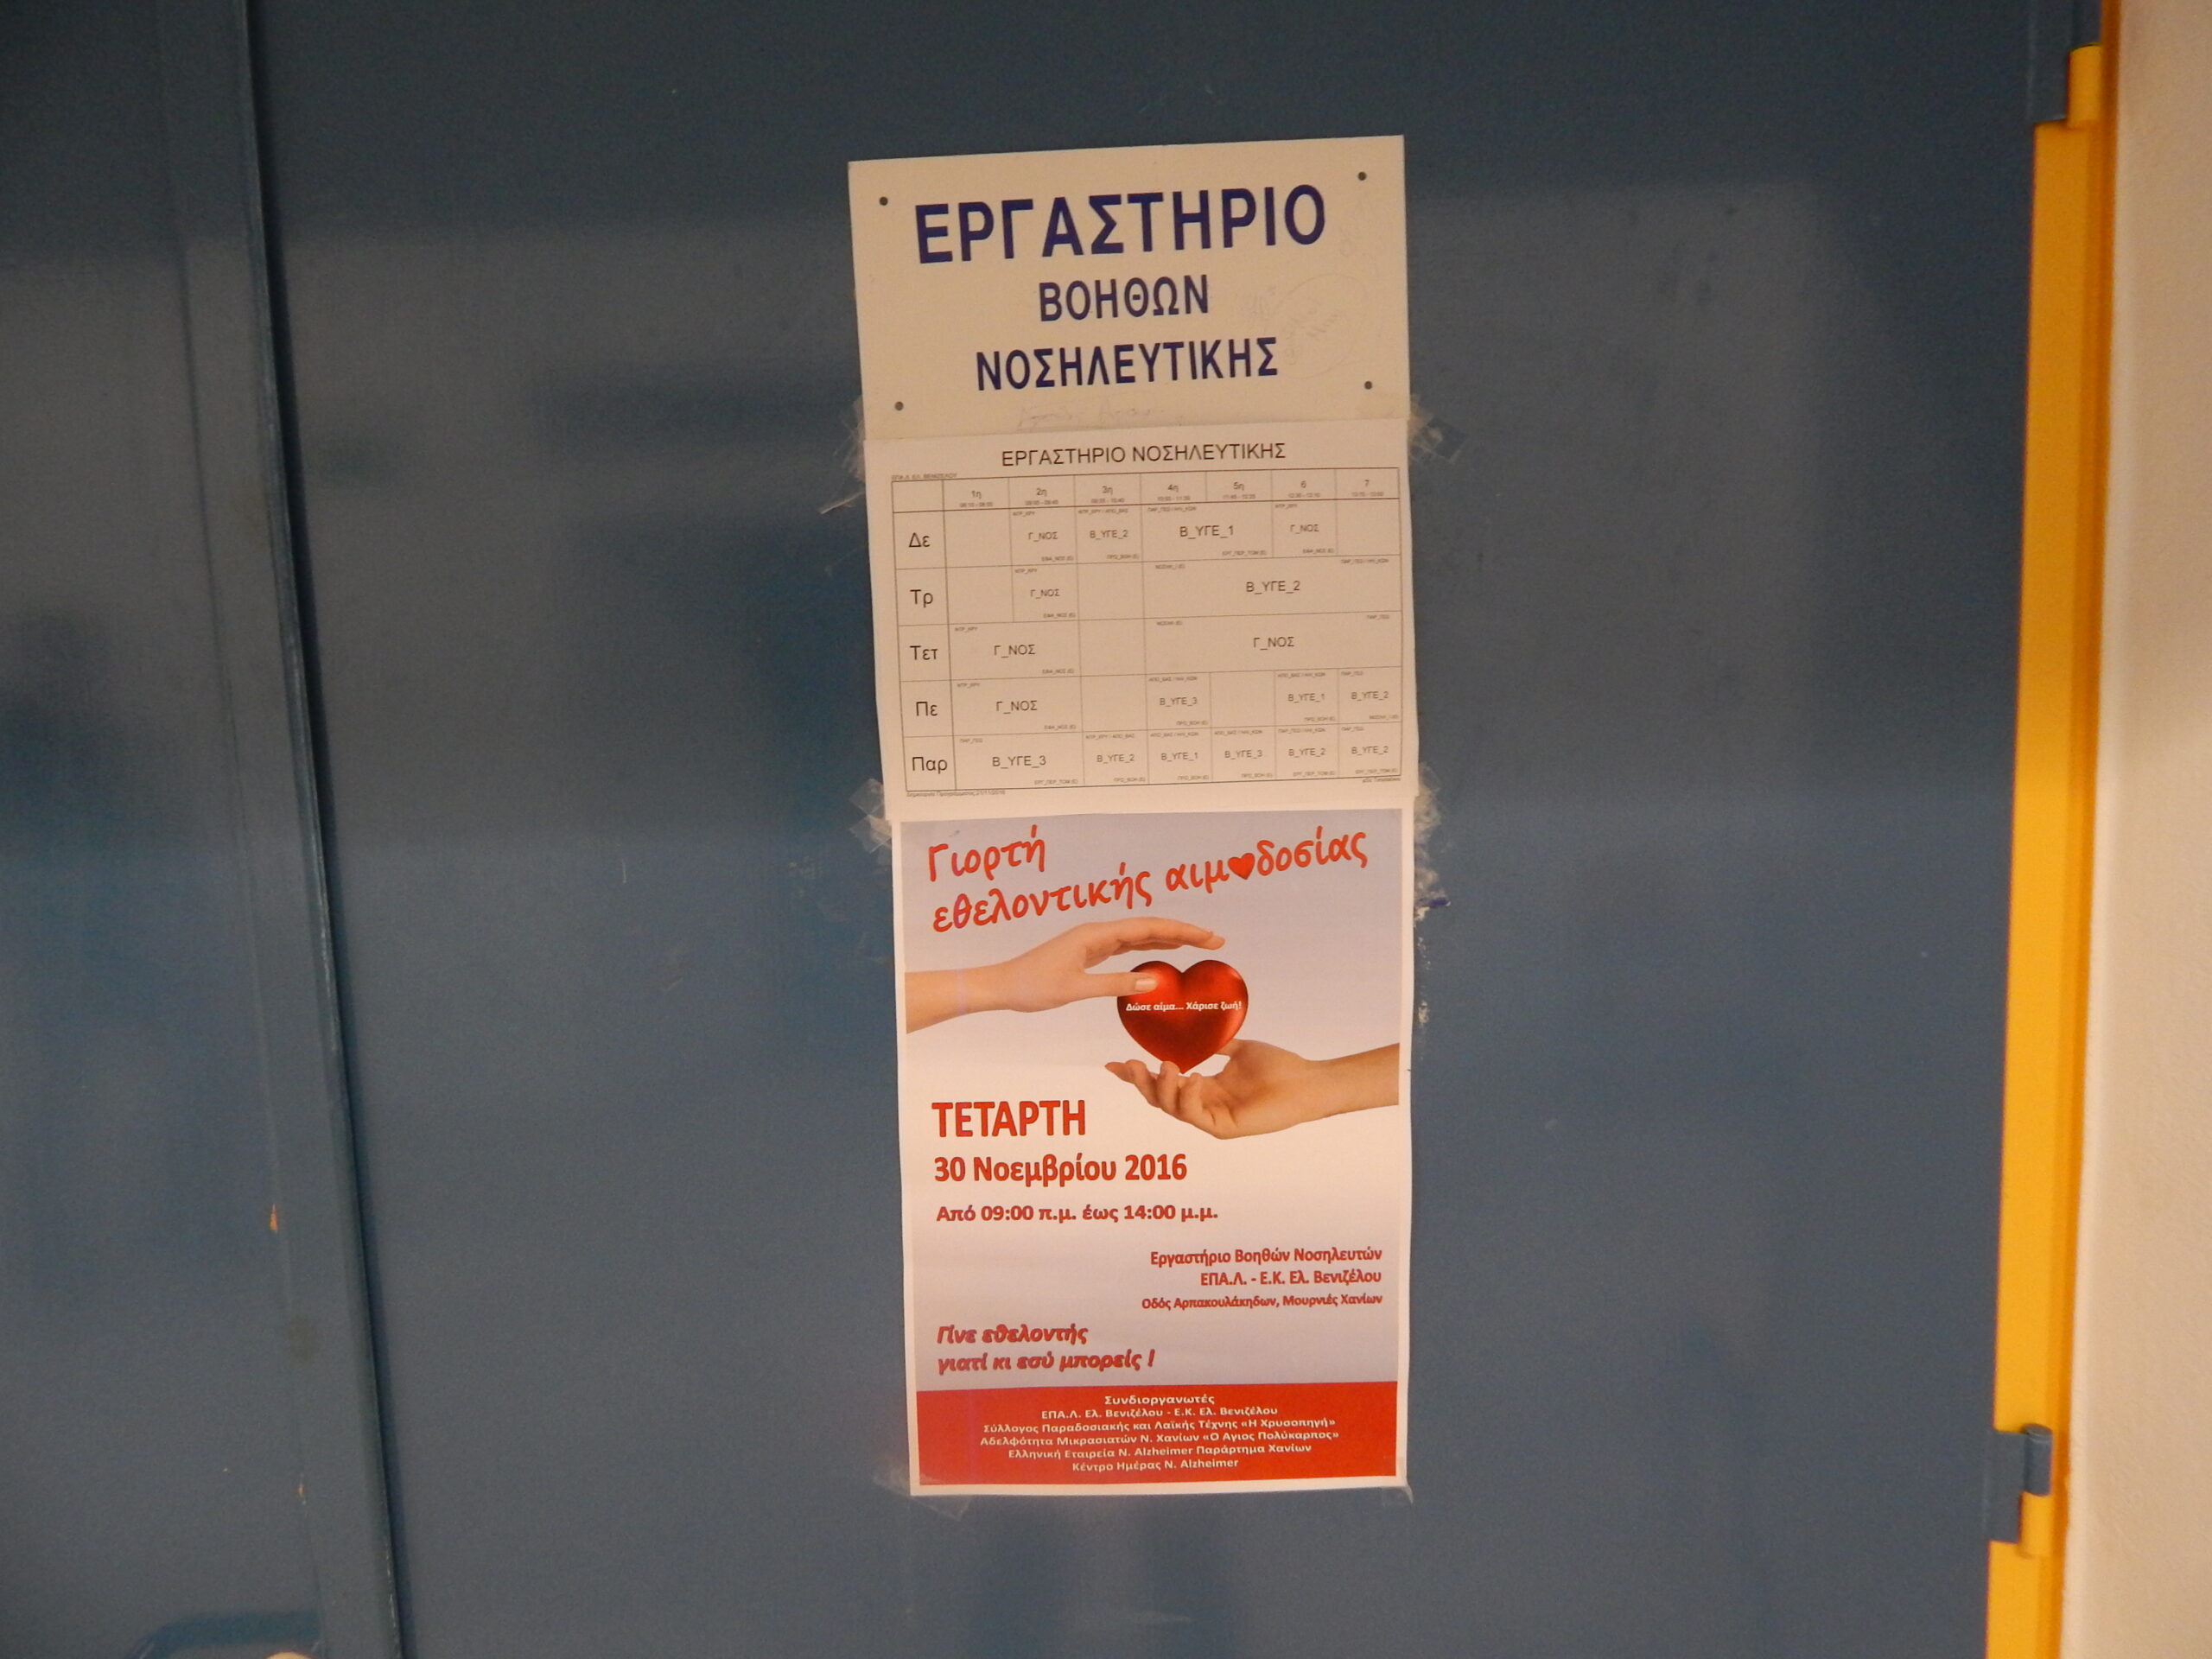 ΕΡΓΑΣΤΗΡΙΟ
ΒΟΗΘΩΝ
ΝΟΣΗΛΕΥΤΙΚΗΣ
ΕΡΓΑΣΤΗΡΙΟ ΝΟΣΗΛΕΥΤΙΚΗΣ
ΕΠΑ.Λ. ΕΛ. ΒΕΝΙΖΕΛΟΥ
1η 2η 3η 4η 5η 6 7
Δε Γ_ΝΟΣ Β_ΥΓΕ_2 Β_ΥΓΕ_1 Γ_ΝΟΣ
Τρ Γ_ΝΟΣ Β_ΥΓΕ_2
Τετ Γ_ΝΟΣ Γ_ΝΟΣ
Πε Γ_ΝΟΣ Β_ΥΓΕ_3 Β_ΥΓΕ_1 Β_ΥΓΕ_2
Παρ Β_ΥΓΕ_3 Β_ΥΓΕ_2 Β_ΥΓΕ_1 Β_ΥΓΕ_3 Β_ΥΓΕ_2 Β_ΥΓΕ_2
Γιορτή
εθελοντικής αιμ♥δοσίας
Δώσε αίμα... Χάρισε ζωή!
ΤΕΤΑΡΤΗ
30 Νοεμβρίου 2016
Από 09:00 π.μ. έως 14:00 μ.μ.
Εργαστήριο Βοηθών Νοσηλευτών
ΕΠΑ.Λ. - Ε.Κ. Ελ. Βενιζέλου
Οδός Αρπακουλάκηδων, Μουρνιές Χανίων
Γίνε εθελοντής
γιατί κι εσύ μπορείς !
Συνδιοργανωτές
ΕΠΑ.Λ. Ελ. Βενιζέλου - Ε.Κ. Ελ. Βενιζέλου
Σύλλογος Παραδοσιακής και Λαϊκής Τέχνης «Η Χρυσοπηγή»
Αδελφότητα Μικρασιατών Ν. Χανίων «Ο Αγιος Πολύκαρπος»
Ελληνική Εταιρεία Ν. Alzheimer Παράρτημα Χανίων
Κέντρο Ημέρας Ν. Alzheimer